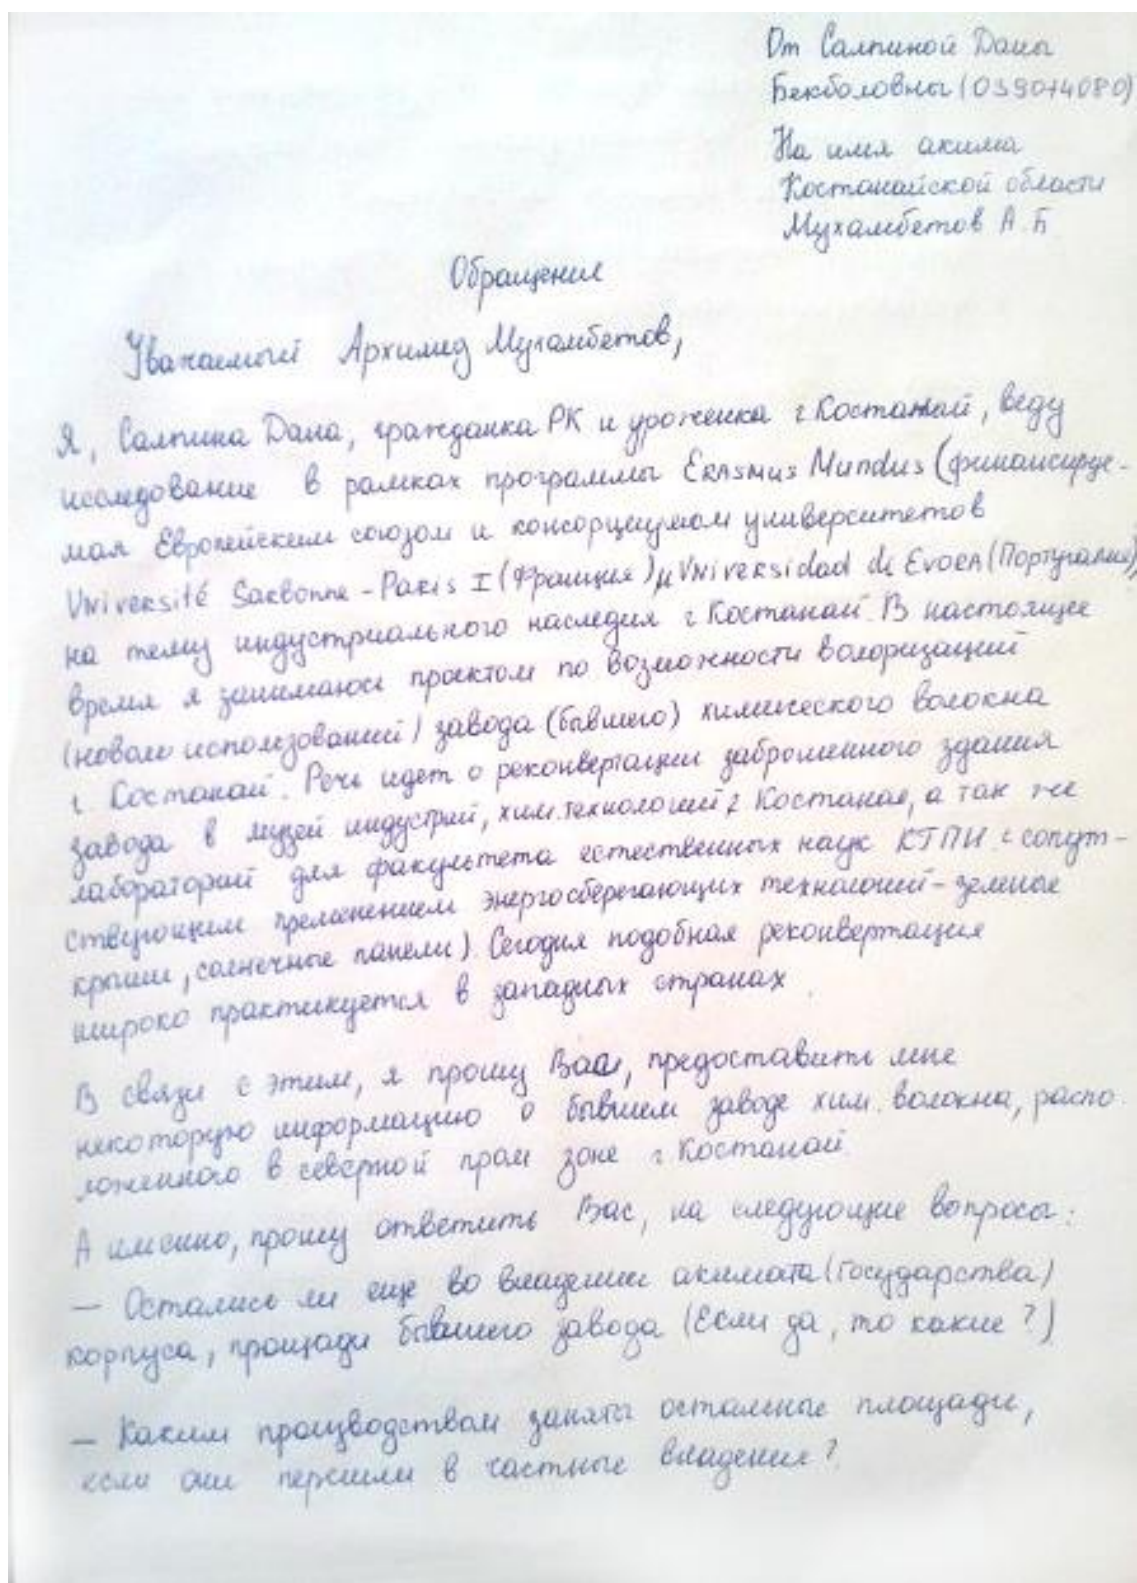 От Салпиной Даны
Бекболовны (059074080)
На имя акима
Костанайской области
Мухамбетов А.Б
Обращение
Уважаемый Архимед Мухамбетов,
Я, Салпина Дана, гражданка РК и уроженка г Костанай, веду
исследование в рамках программы Erasmus Mundus (финансируе-
мая Европейским союзом и консорциумом университетов
Université Sorbonne - Paris I (Франция) и Universidad de Evora (Португалия),
на тему индустриального наследия г Костанай. В настоящее
время я занимаюсь проектом по возможности волоризаций
(новом использований) завода (бывшего) химического волокна
г. Костанай. Речь идет о реконвертации заброшенного здания
завода в музей индустрий, хим. технологий г Костаная, а так же
лабораторий для факультета естественных наук КГПИ с сопут-
ствующим применением энергосберегающих технологий - зеленые
крыши, солнечные панели). Сегодня подобная реконвертация
широко практикуется в западных странах.
В связи с этим, я прошу Вас, предоставить мне
некоторую информацию о бывшем заводе хим. волокна, распо
ложенного в северной пром зоне г Костанай.
А именно, прошу ответить Вас, на следующие вопросы:
— Остались ли еще во владении акимата (государства)
корпуса, площади бывшего завода (Если да, то какие?)
— Каким производством заняты остальные площади,
если они перешли в частные владение?